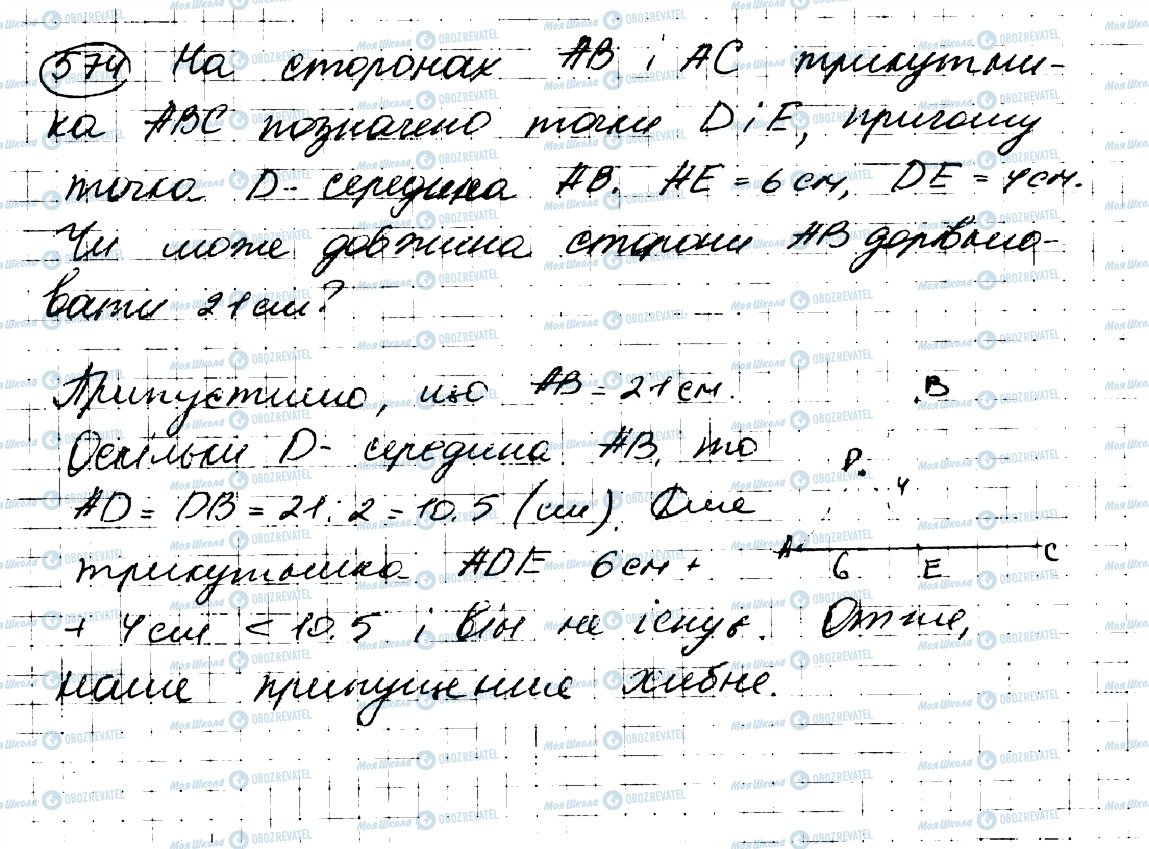 574 На сторонах AB і AC трикутни-
ка ABC позначено точки D і E, причому
точка D - середина AB. AE = 6 см, DE = 4 см.
Чи може довжина сторони AB дорівню-
вати 21 см?
Припустимо, що AB = 21 см.
Оскільки D - середина AB, то
AD = DB = 21 : 2 = 10.5 (см). Для
трикутника ADE 6 см +
+ 4 см < 10.5 і він не існує. Отже,
наше припущення хибне.
B
D
4
A 6 E C
Моя Школа OBOZREVATEL